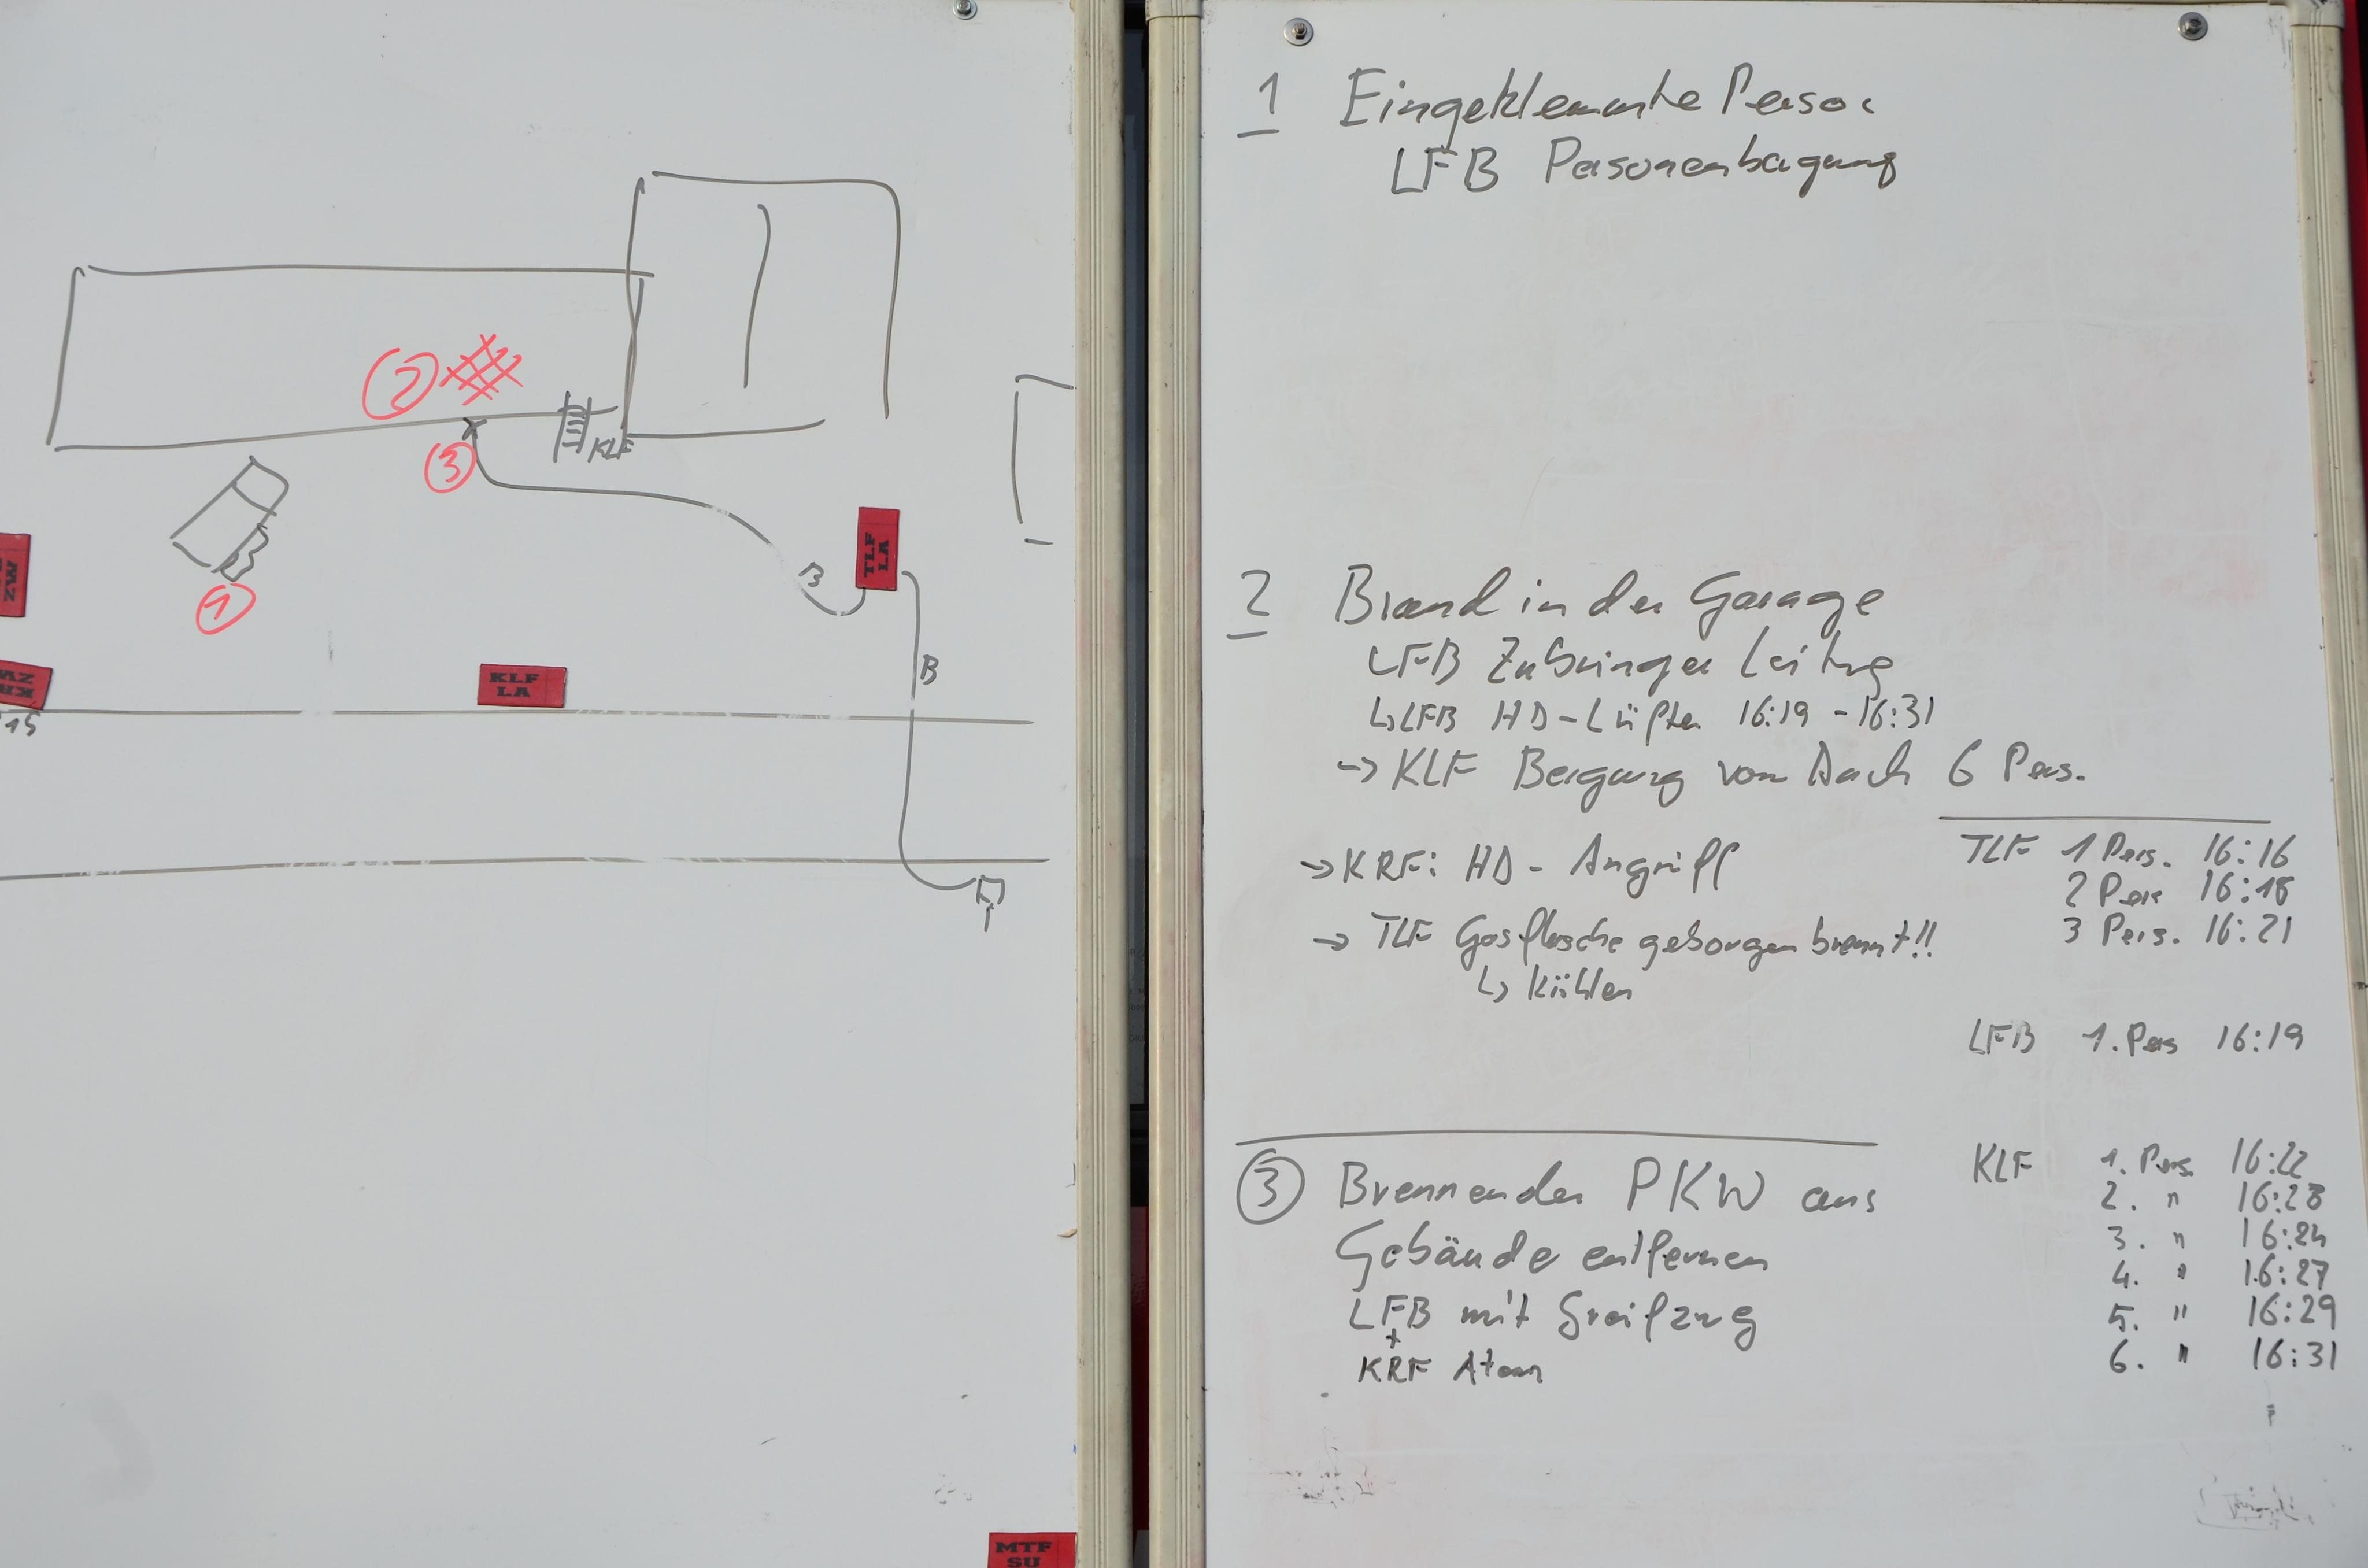 2
KLF
3
1
TLF
LA
B
B
KLF
LA
15
MTF
SU
1 Eingeklemmte Person
LFB Personenbergung
2 Brand in der Garage
LFB Zubringer Leitung
↳ LFB HD-Lüfter 16:19 - 16:31
-> KLF Bergung vom Dach 6 Pers.
-> KRF: HD - Angriff
-> TLF Gasflasche geborgen brennt!!
↳ Kühlen
TLF 1 Pers. 16:16
2 Pers 16:18
3 Pers. 16:21
LFB 1. Pers 16:19
3 Brennender PKW aus
Gebäude entfernen
LFB mit Greifzug
+
KRF Atem
KLF 1. Pers. 16:22
2. " 16:23
3. " 16:24
4. " 16:27
5. " 16:29
6. " 16:31